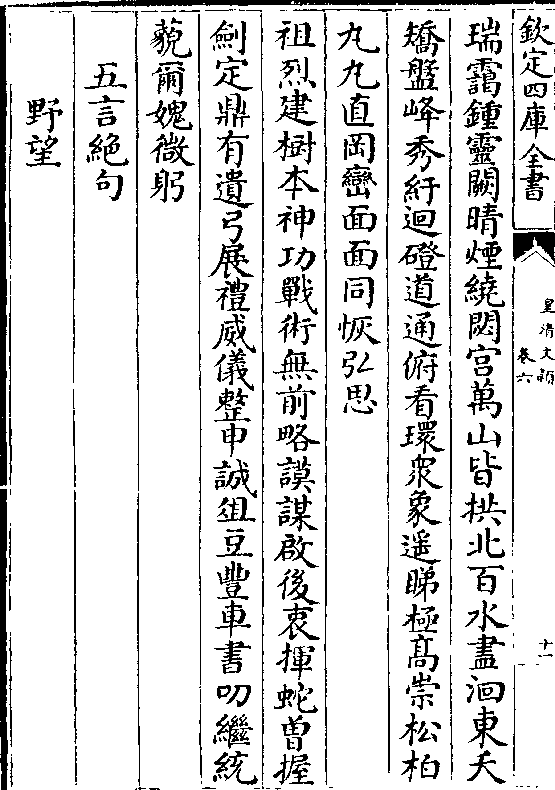 欽定四庫全書
皇清文穎
卷六
十一
瑞靄鍾靈闕晴煙繞閟宮萬山皆拱北百水盡洄東夭
矯盤峰秀紆迴磴道通俯看環衆象遥睇極髙崇松柏
九九直岡巒面面同恢弘思
祖烈建樹本神功戰術無前略謨謀啟後衷揮蛇曽握
劍定鼎有遺弓展禮威儀整申誠俎豆豐車書叨繼統
藐爾媿微躬
五言絶句
野望